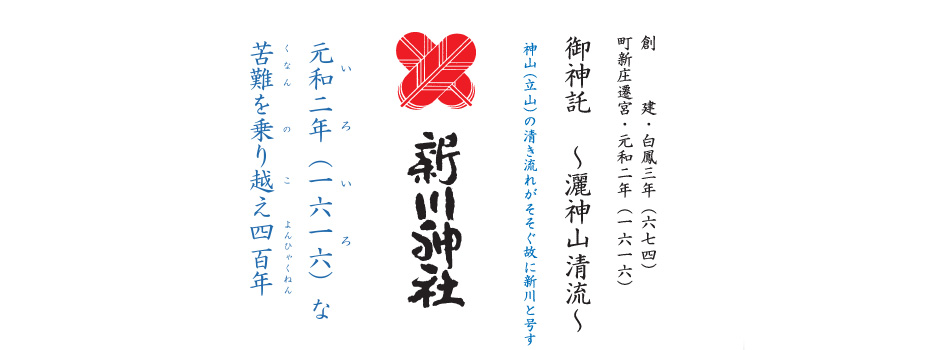 創　建・白鳳三年（六七四）
町新庄遷宮・元和二年（一六一六）
御神託　～灑神山清流～
神山（立山）の清き流れがそそぐ故に新川と号す
新川神社
いろいろ
元和二年（一六一六）な
くなん の こ よんひゃくねん
苦難を乗り越え四百年